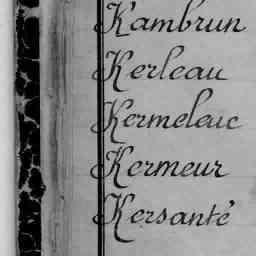 Kambrun
Kerleau
Kermeleuc
Kermeur
Kersanté